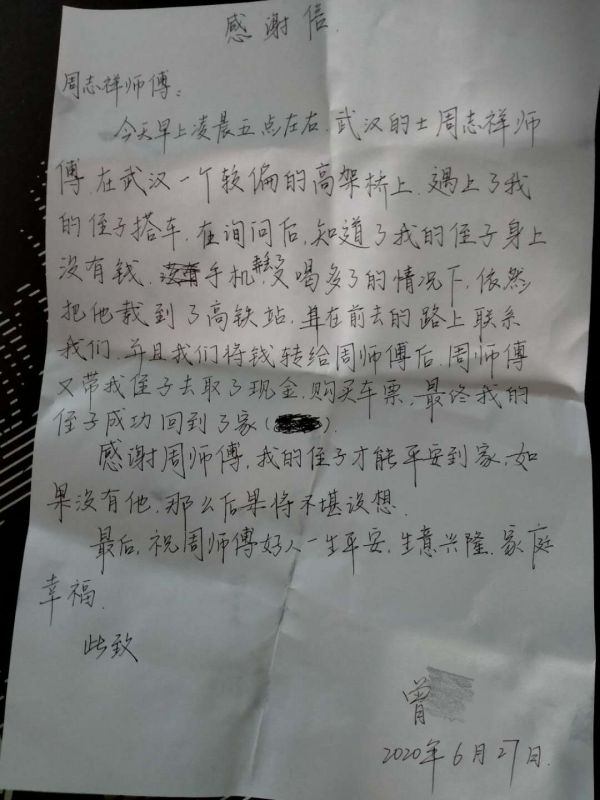 感谢信.
周志祥师傅:
今天早上凌晨五点左右.武汉的士周志祥师
傅.在武汉一个较偏的高架桥上.遇上了我
的侄子搭车.在询问后,知道了我的侄子身上
没有钱.手机丢了又喝多了的情况下,依然
把他载到了高铁站.并在前去的路上联系
我们.并且我们将钱转给周师傅后.周师傅
又带我侄子去取了现金.购买车票,最终我的
侄子成功回到了家( ).
感谢周师傅,我的侄子才能平安到家,如
果没有他.那么后果将不堪设想.
最后,祝周师傅好人一生平安,生意兴隆.家庭
幸福.
此致
曾
2020年6月27日.